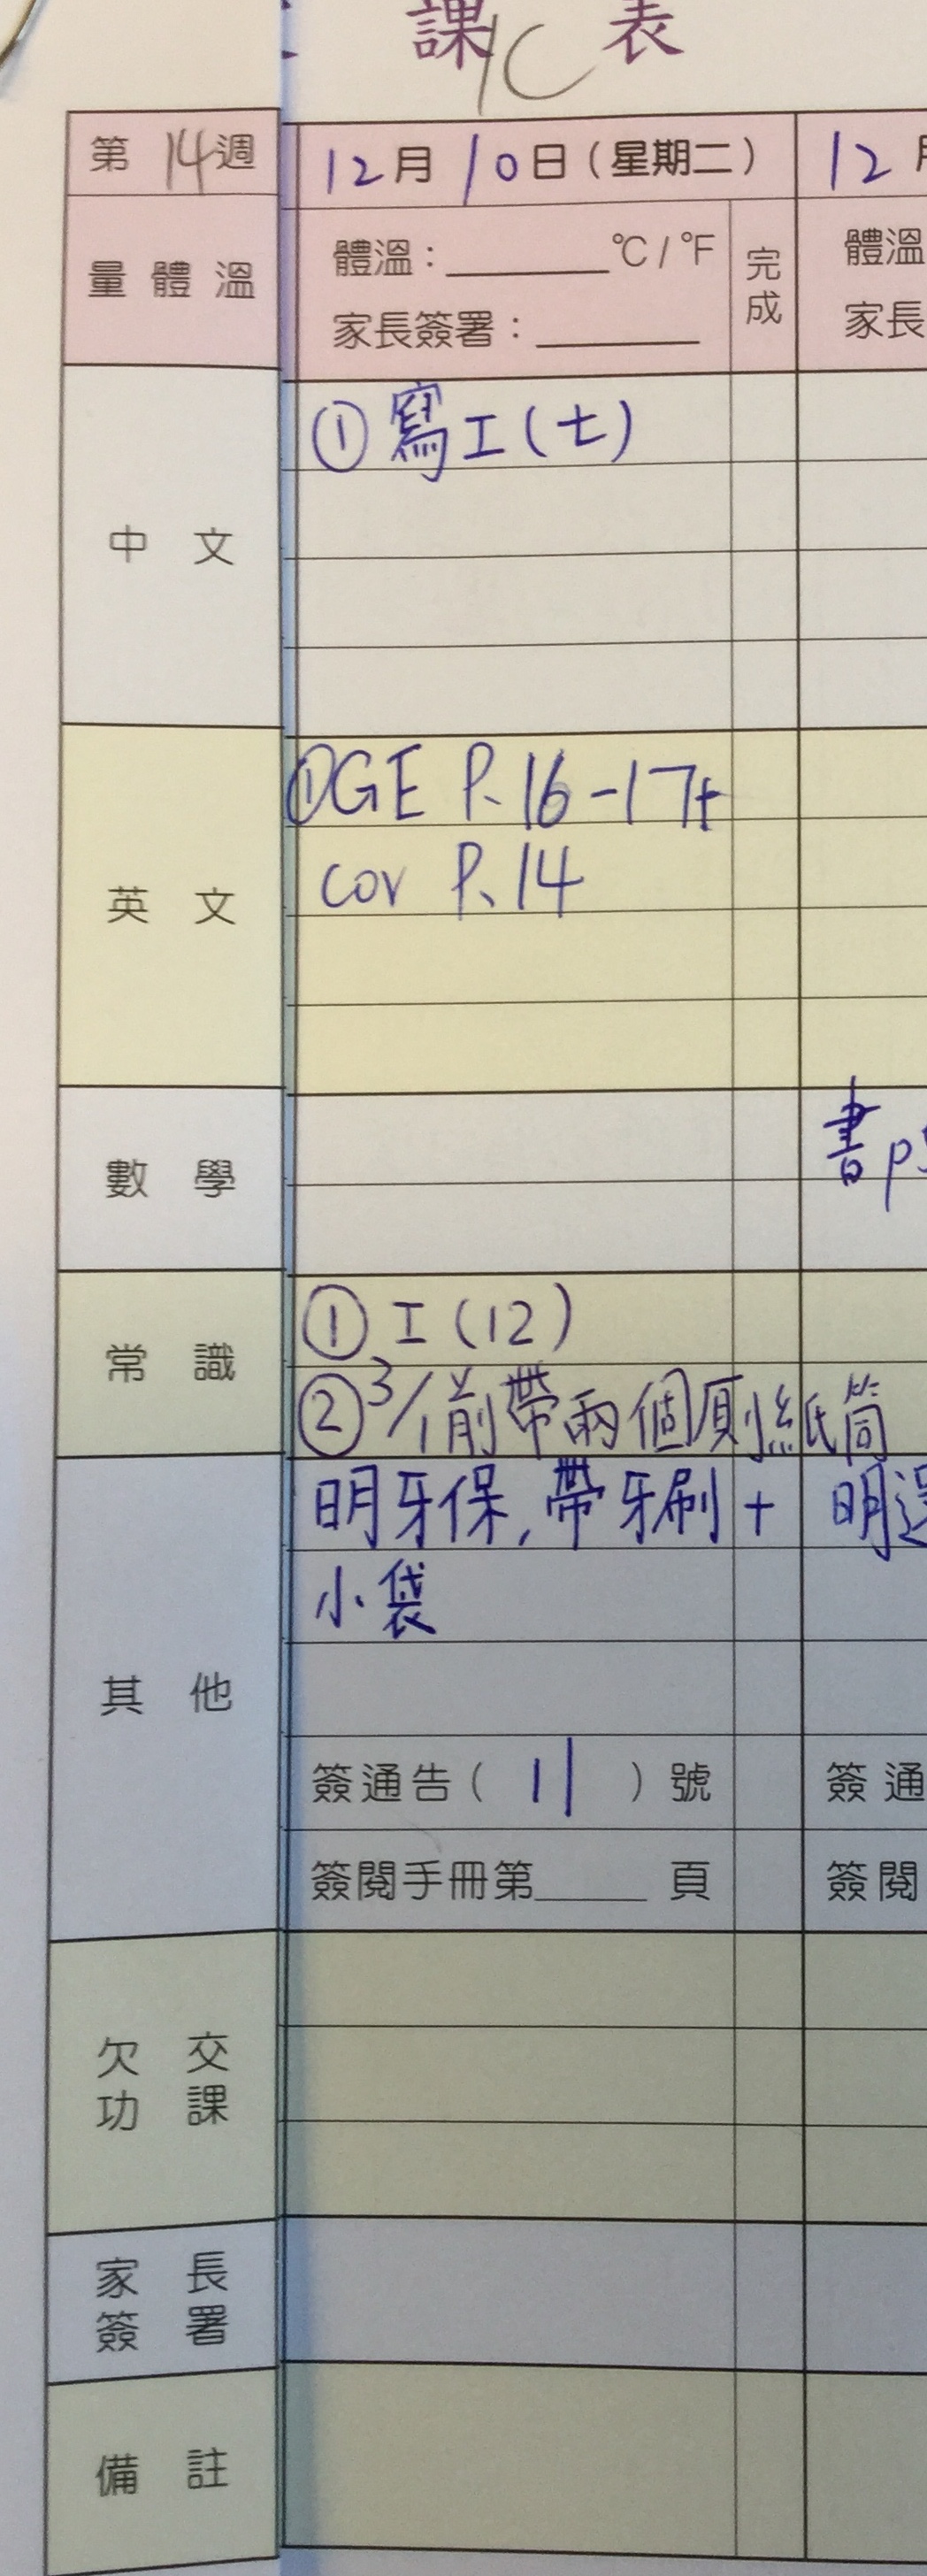 課 表
1C
第 14 週
12月10日(星期二)
12
量體溫
體溫:______°C/°F
完成
體溫
家長簽署:______
家長
中文
①寫工(七)
英文
①GE P.16-17+
cor P.14
數學
書p
常識
①工(12)
②3/1前帶兩個厠紙筒
其他
明牙保,帶牙刷+
明還
小袋
簽通告( 11 )號
簽通
簽閱手冊第____頁
簽閱
欠交功課
家長簽署
備註